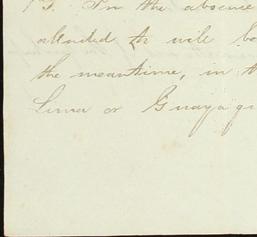 P.S. In the absence
alluded to will be
the meantime, in th
Lima or Guayaqu